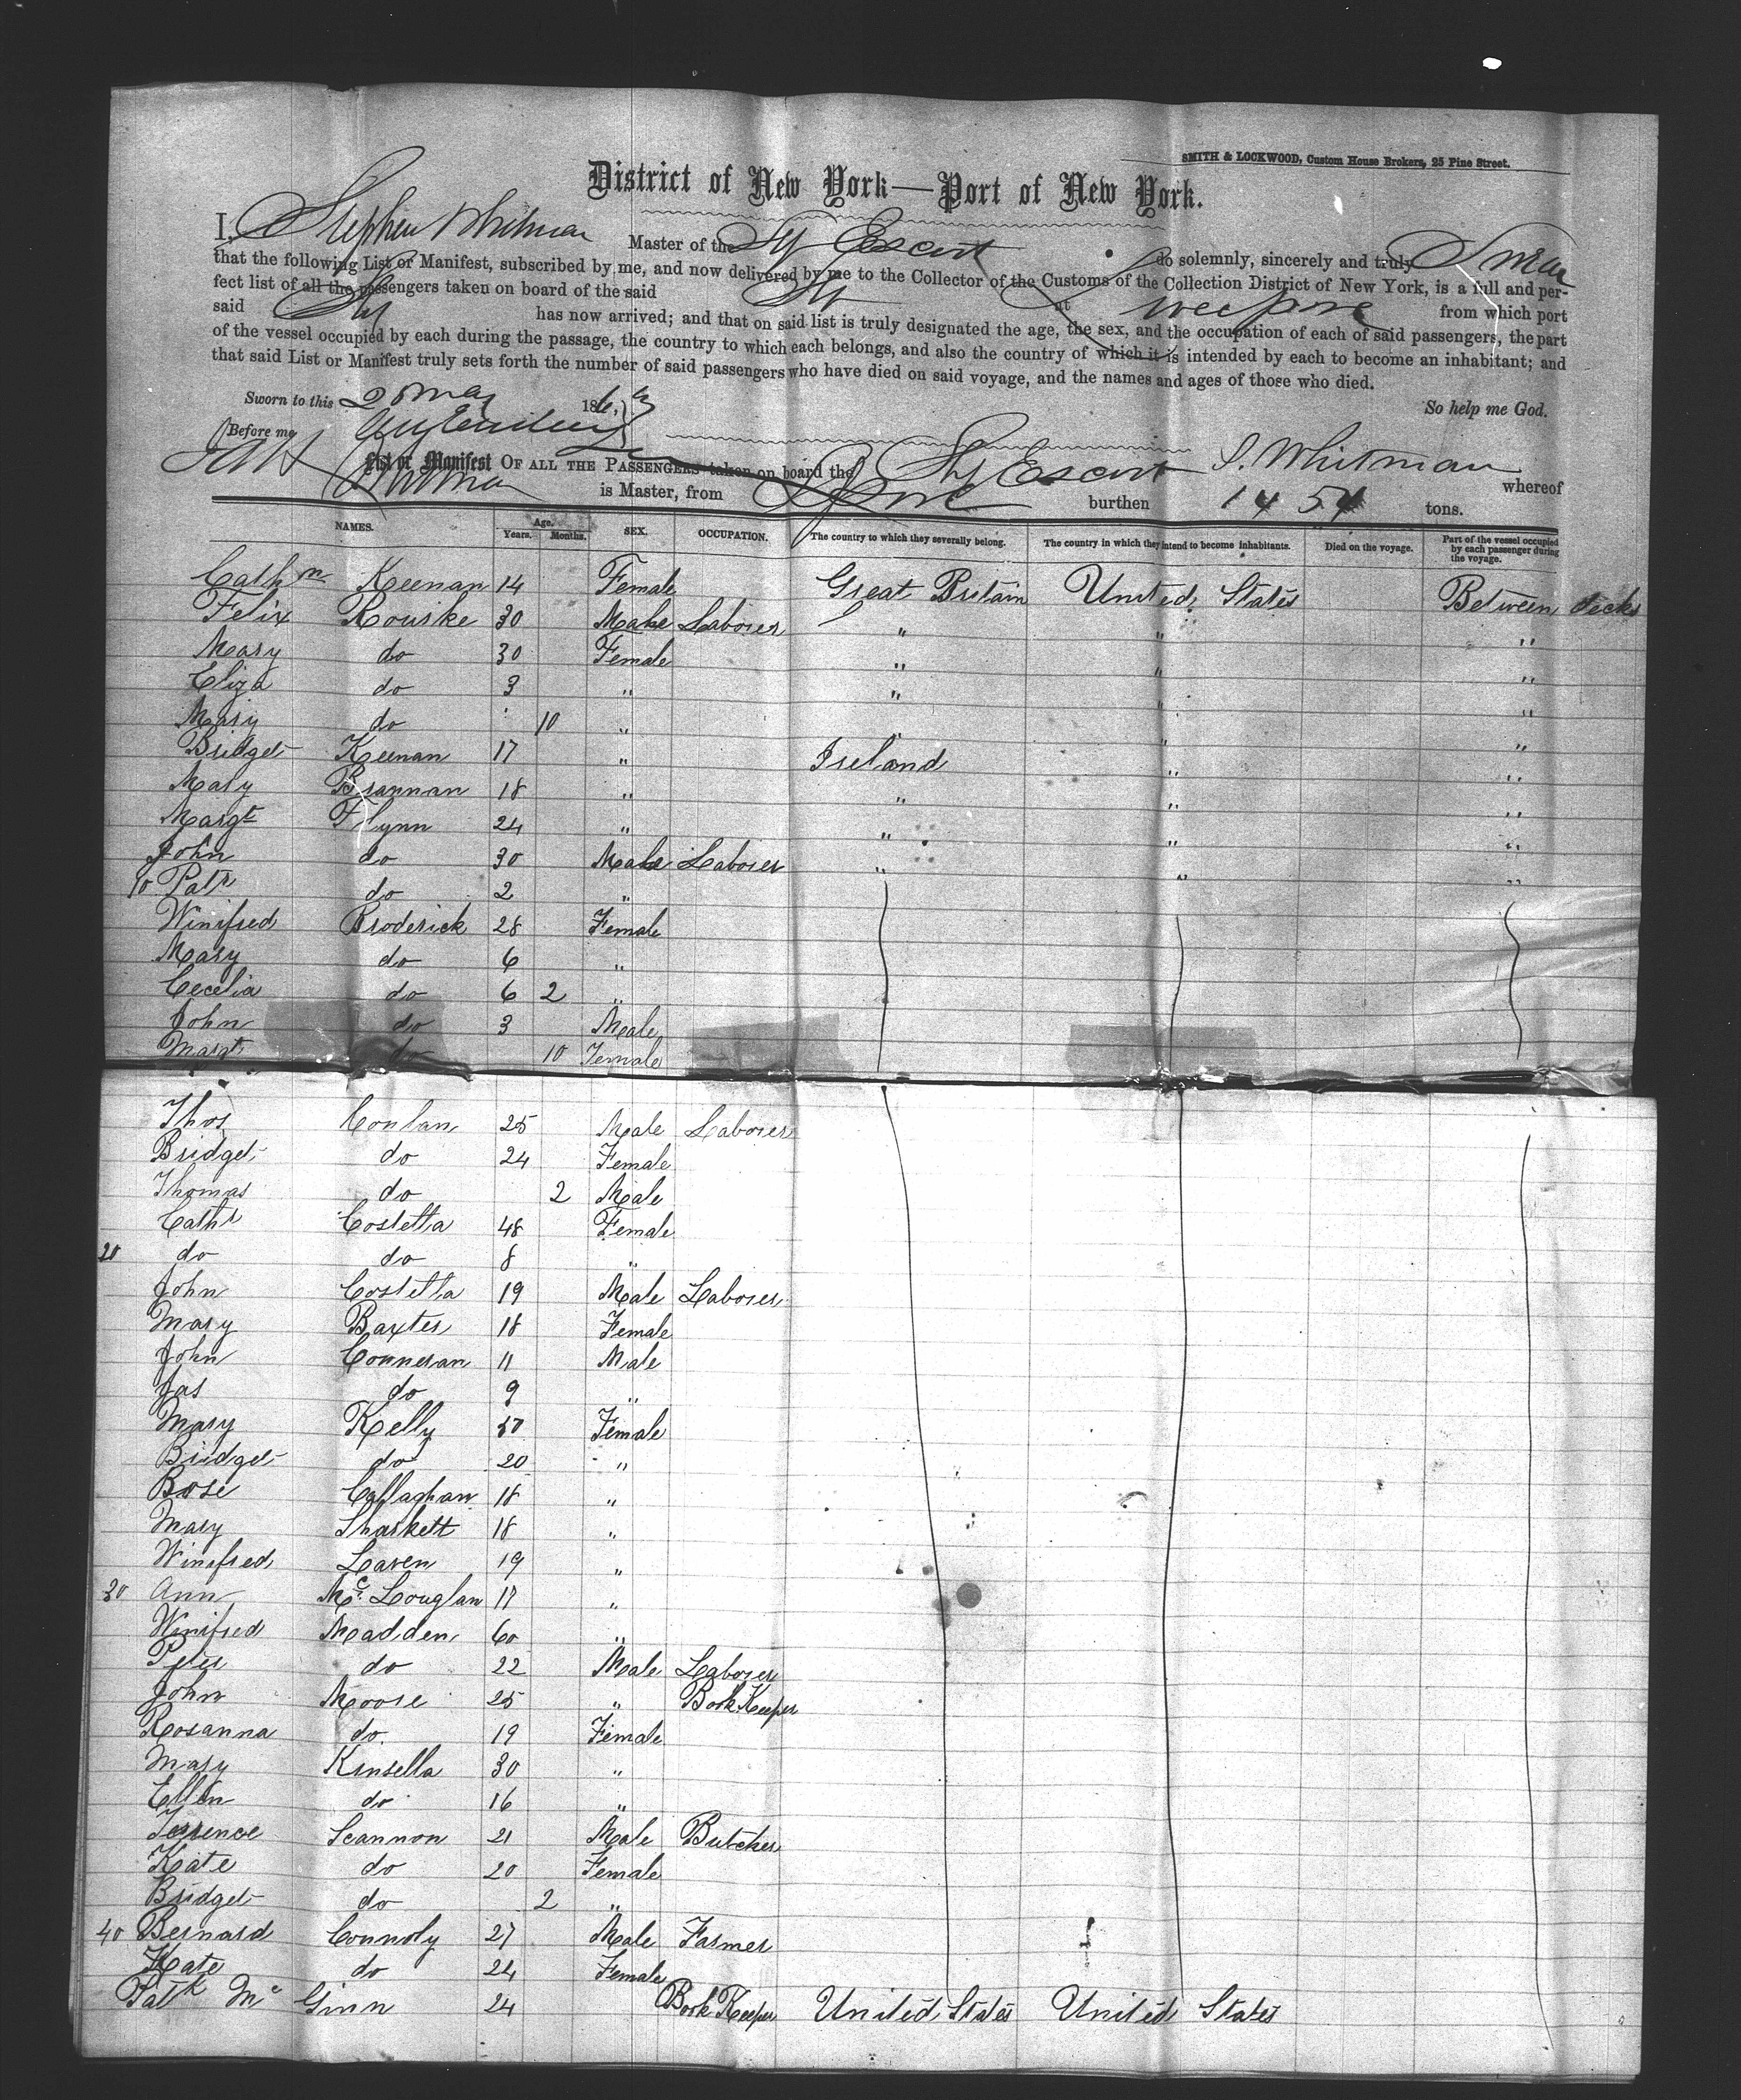 SMITH & LOCKWOOD, Custom House Brokers, 25 Pine Street.
District of New York—Port of New York.
I, Stephen Whitman Master of the Sp Escort do solemnly, sincerely and truly Swear
that the following List or Manifest, subscribed by me, and now delivered by me to the Collector of the Customs of the Collection District of New York, is a full and per-
fect list of all the passengers taken on board of the said Sp at Liverpool from which port
said Sp has now arrived; and that on said list is truly designated the age, the sex, and the occupation of each of said passengers, the part
of the vessel occupied by each during the passage, the country to which each belongs, and also the country of which it is intended by each to become an inhabitant; and
that said List or Manifest truly sets forth the number of said passengers who have died on said voyage, and the names and ages of those who died.
So help me God.
Sworn to this 28 May 186
Before me S. Whitman
List or Manifest OF ALL THE PASSENGERS taken on board the Sp Escort whereof
Whitman is Master, from Lpool burthen 1454 tons.
NAMES. Age. Years. Months. SEX. OCCUPATION. The country to which they severally belong. The country in which they intend to become inhabitants. Died on the voyage. Part of the vessel occupied by each passenger during the voyage.
Cathne Keenan 14 Female Great Britain United States Between decks
Felix Rourke 30 Male Laborer " " "
Mary do 30 Female " " "
Eliza do 3 " " " "
Mary do 10 " " " "
Bridget Keenan 17 " Ireland " "
Mary Brannan 18 " " " "
Margt Flynn 24 " " " "
John do 30 Male Laborer " " "
10 Patk do 2 "
Winifred Broderick 28 Female
Mary do 6 "
Cecelia do 6 2 "
John do 3 Male
Margt do 10 Female
Thos Conlan 25 Male Laborer
Bridget do 24 Female
Thomas do 2 Male
Cathe Costella 48 Female
20 do do 8 "
John Costella 19 Male Laborer
Mary Baxter 18 Female
John Conneran 11 Male
Jas do 9 "
Mary Kelly 50 Female
Bridget do 20 "
Rose Callaghan 18 "
Mary Sharkett 18 "
Winifred Laven 19 "
30 Ann Mc Louglan 17 "
Winifred Madden 60 "
Peter do 22 Male Laborer
John Moore 25 " Book Keeper
Rosanna do 19 Female
Mary Kinsella 30 "
Ellen do 16 "
Terrence Scannon 21 Male Butcher
Kate do 20 Female
Bridget do 2 "
40 Bernard Connoly 27 Male Farmer
Kate do 24 Female
Patk Mc Ginn 24 Book Keeper United States United States